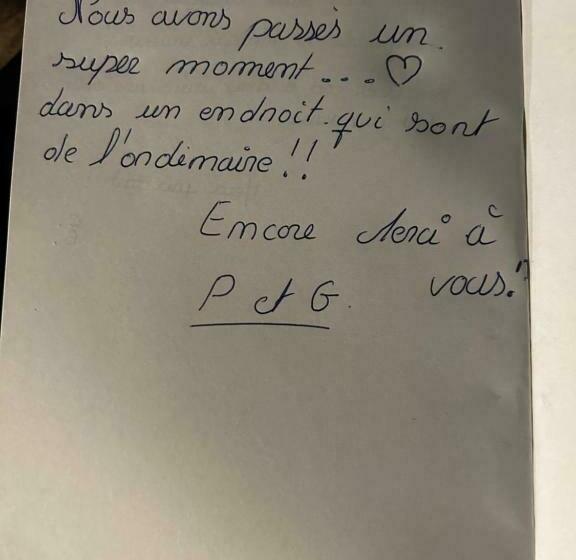 Nous avons passés un
super moment... ♡
dans un endroit qui sont
de l'ordinaire!!
Encore Merci à
vous!!
P et G.